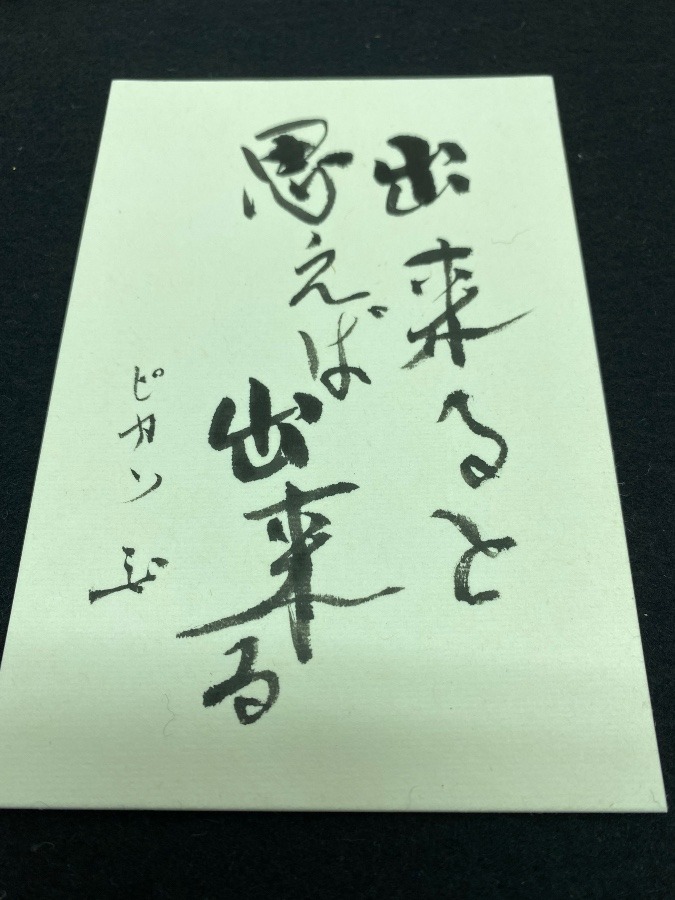 出来ると
思えば
出来る
ピカソ